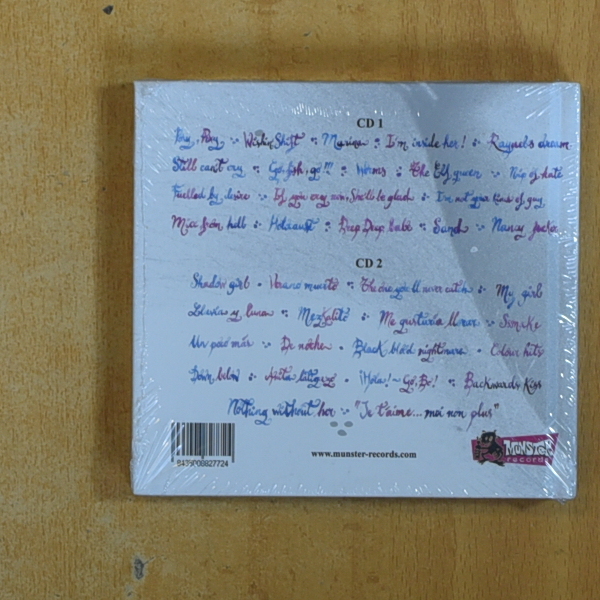 CD 1
Pay, Pray Workin Shift I'm inside her! Raquel's dream
Still can't cry Go, fish, go!!! Worms The Elf queen of hate
Fuelled by desire If you cry now, She'll be glad I'm not your kind of guy
Mice from hell Holocaust Deep Deep babe Sand Nancy
CD 2
Shadow girl Verano muerto The one you'll never catch My girl
Lluvia y luna Mezcalito Me gustaría llorar Smoke
Un poco más De noche Black blood nightmare Colour hits
Down below ¡Hola! Go, Be! Backwards Kiss
Nothing without her "Je t'aime... moi non plus"
www.munster-records.com
MUNSTER
records